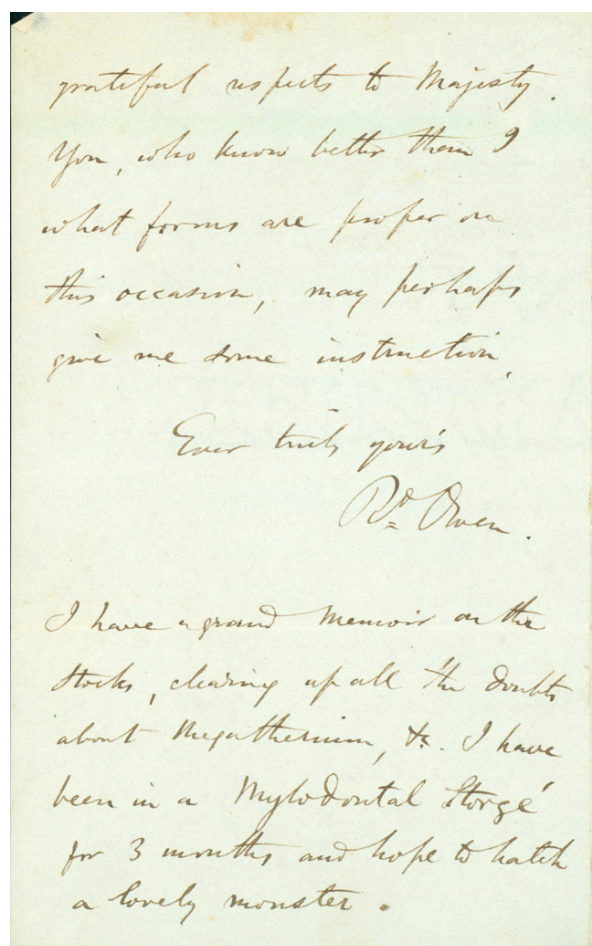 grateful respects to Majesty.
You, who know better than I
what forms are proper on
this occasion, may perhaps
give me some instruction.
Ever truly yours
Rd Owen.
I have a grand Memoir on the
Stocks, clearing up all the doubts
about Megatherium, &c. I have
been in a Mylodontal Storgé
for 3 months and hope to hatch
a lovely monster.